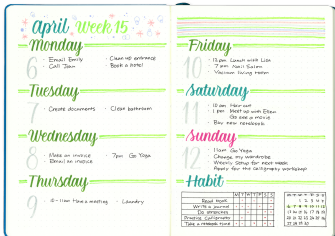 April Week 15
Monday
6
· Email Emily
· Call Jean
· Clean up entrance
· Book a hotel
Tuesday
7
· Create documents
· Clean bathroom
Wednesday
8
· Make an invoice
· Email an invoice
· 7pm Go Yoga
Thursday
9
· 9-11am Have a meeting
· Laundry
Friday
10
· 12pm Lunch with Lisa
· 7pm Nail Salon
· Vacuum living room
Saturday
11
· 10am Hair cut
· 1pm Meet up with Eben
Go see a movie
Buy new notebook
Sunday
12
· 11am Go Yoga
Change my wardrobe
Weekly Setup for next week
Apply for the calligraphy workshop
Habit
M T W T F S S
Read book
Write a journal
Do stretches
Practice Calligraphy
Take a nature time